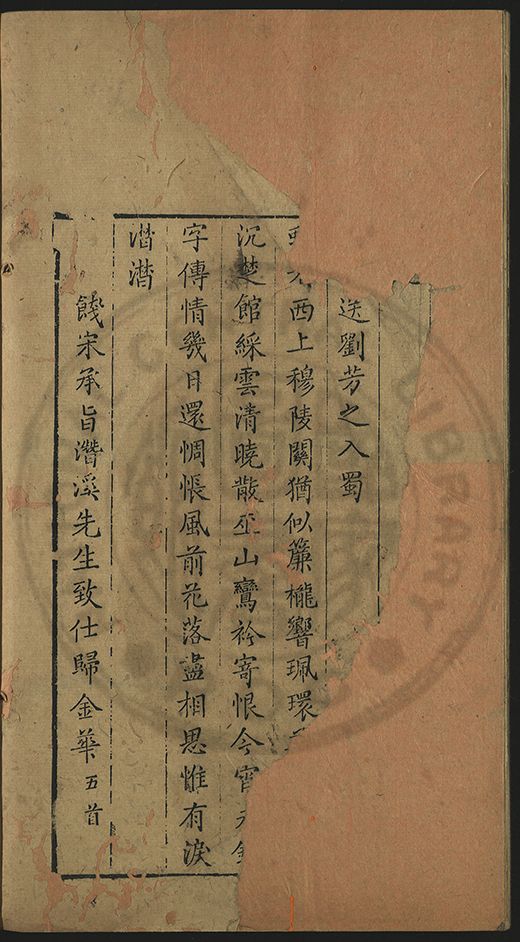 送劉芳之入蜀
西上穆陵關猶似簾櫳響珮環
沉楚館綵雲清曉散巫山鸞衿寄恨今宵
字傳情幾日還惆悵風前花落盡相思惟有淚
潸潸
餞宋承旨潛溪先生致仕歸金華五首